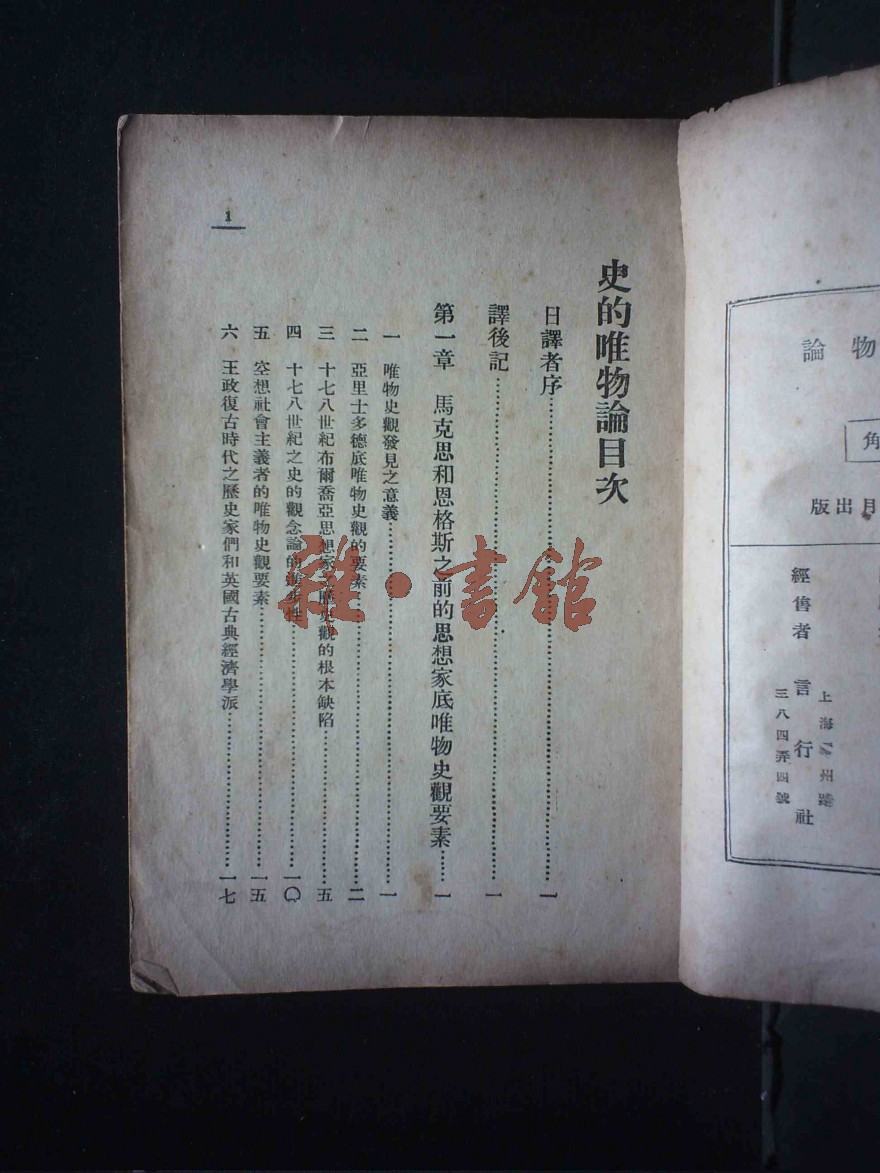 史的唯物論目次
日譯者序……………………一
譯後記……………………一
第一章 馬克思和恩格斯之前的思想家底唯物史觀要素……一
一 唯物史觀發見之意義……………………一
二 亞里士多德底唯物史觀的要素……………………二
三 十七八世紀布爾喬亞思想家之歷史觀的根本缺陷……………………五
四 十七八世紀之史的觀念論的進步性……………………一〇
五 空想社會主義者的唯物史觀要素……………………一五
六 王政復古時代之歷史家們和英國古典經濟學派……………………一七
1
雜·書館
物論
角
月出版
經售者 言行社
上海 州路
三八四弄四號